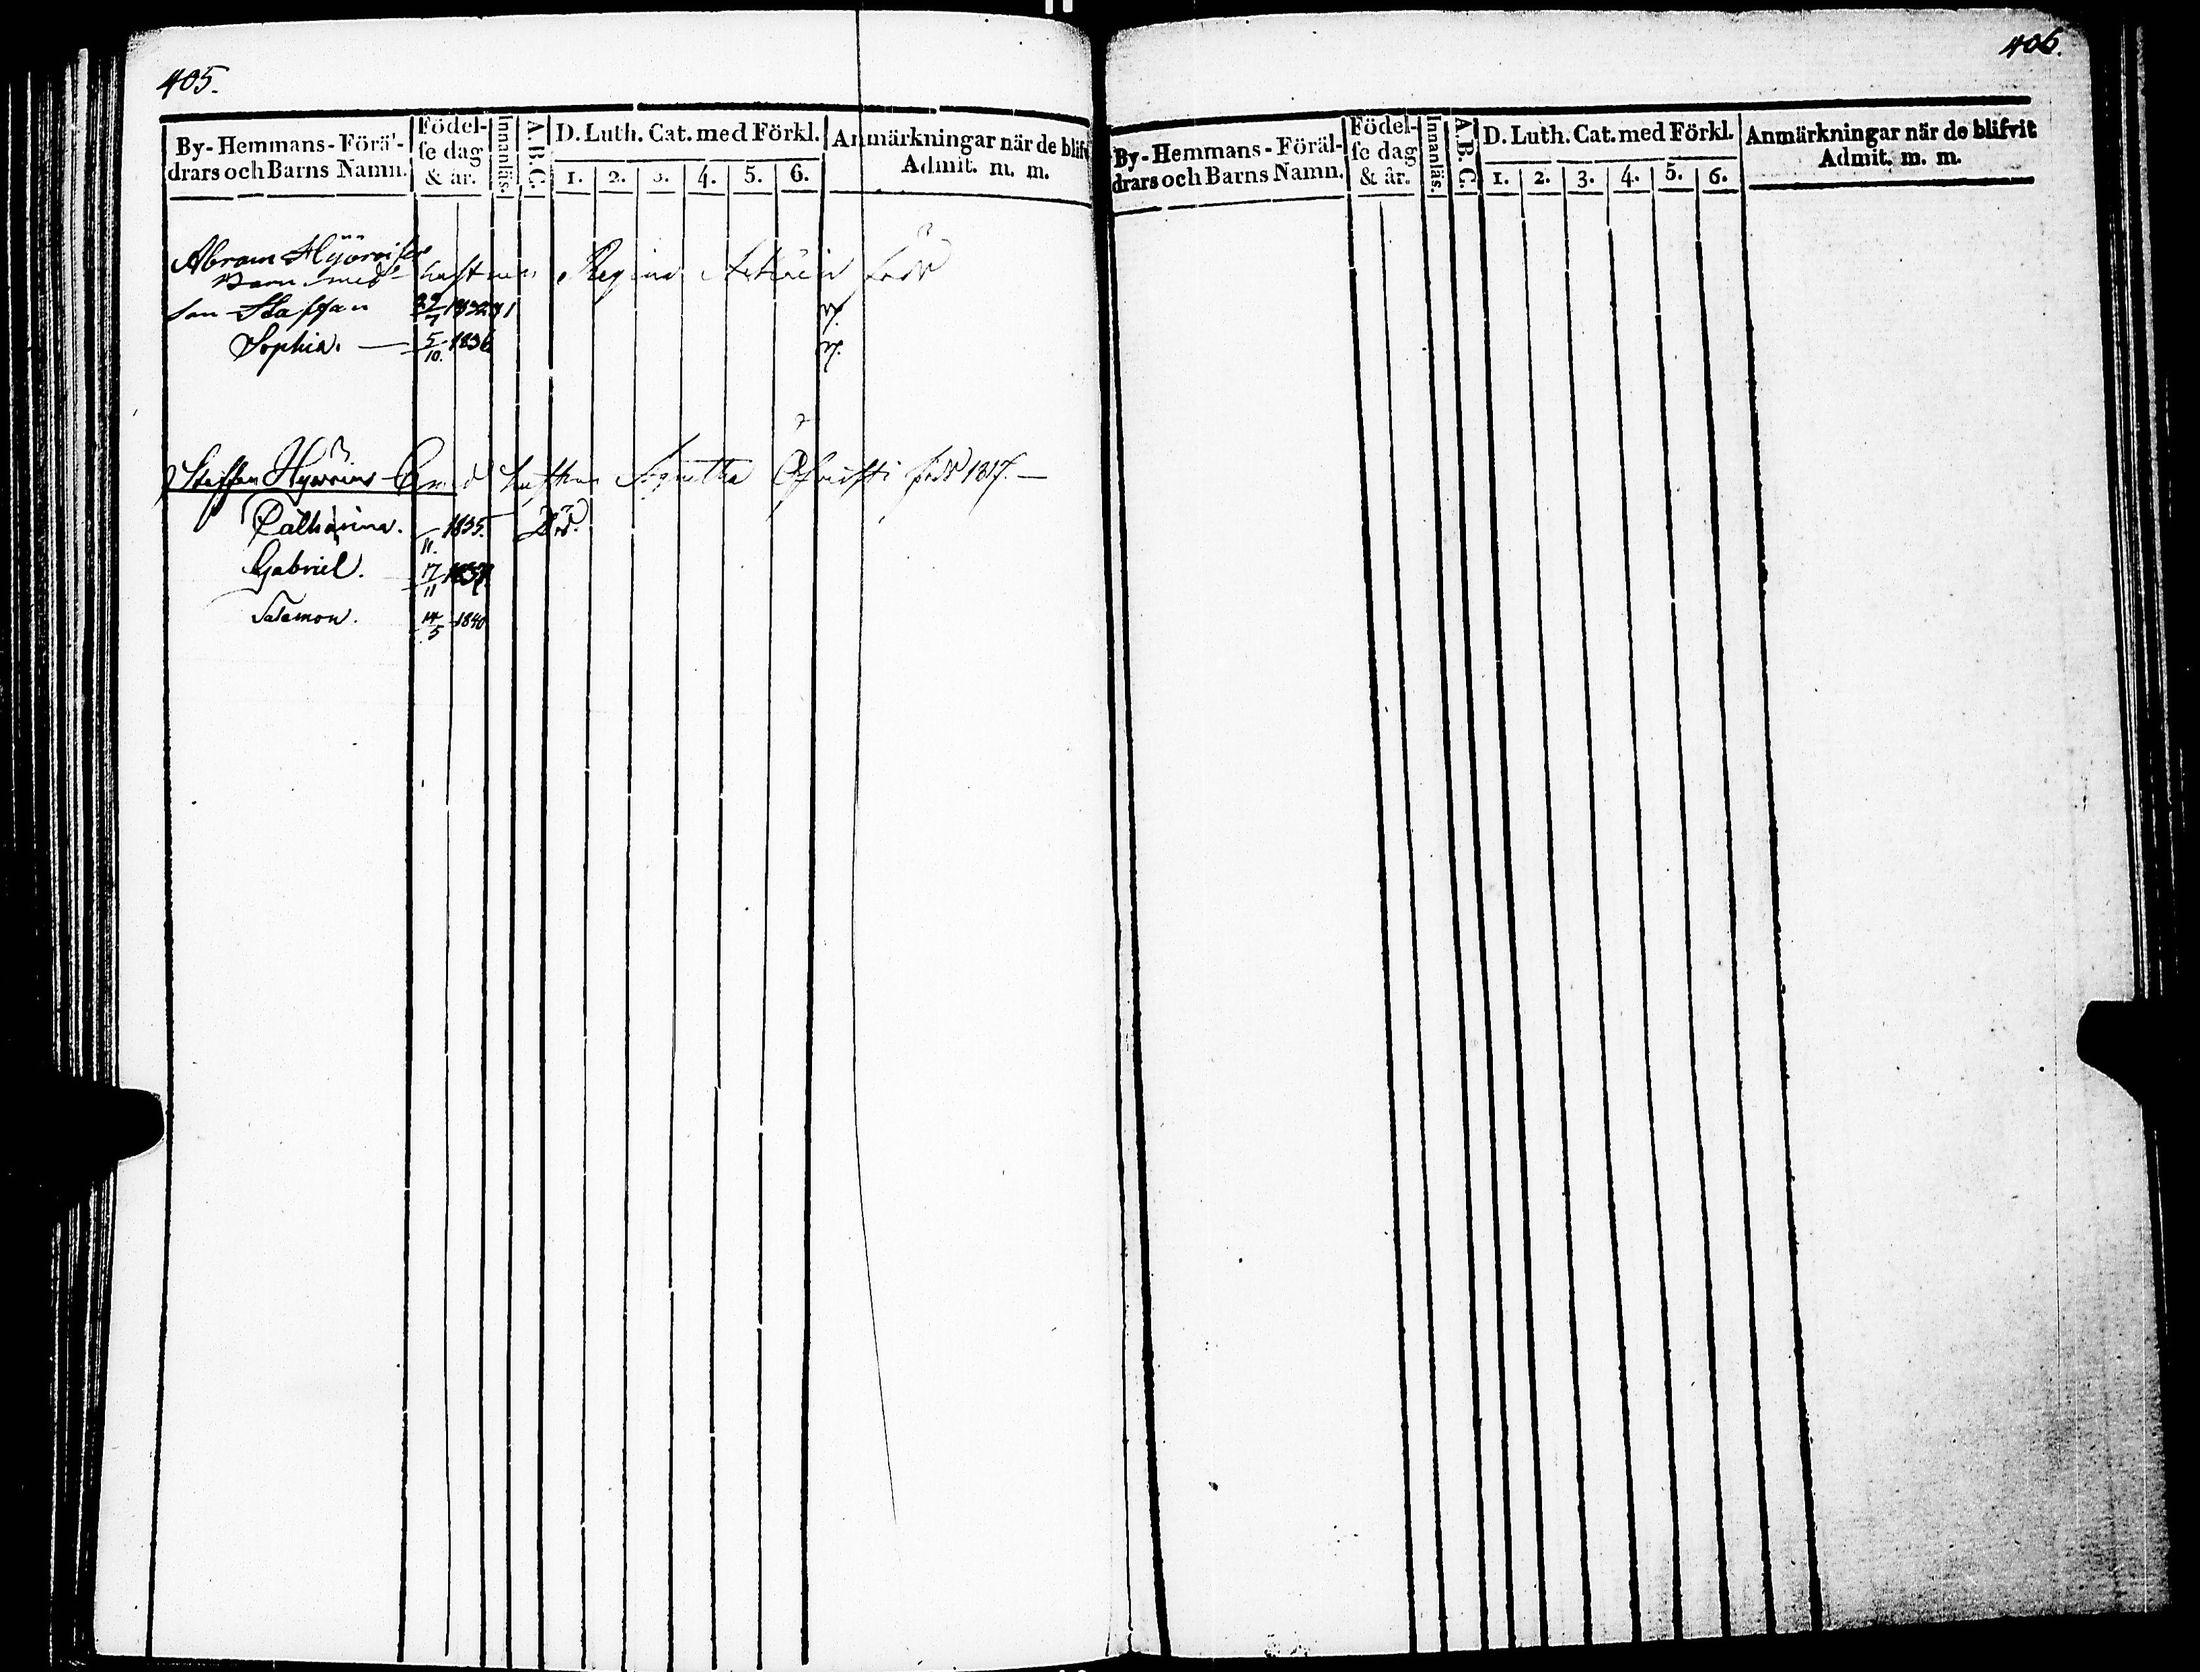 405.
By-Hemmans-Föräl-
drars och Barns Namn.
Födel-
se dag
& år.
Innanläs.
A.B.C.
D. Luth. Cat. med Förkl.
1. 2. 3. 4. 5. 6.
Anmärkningar när de blifv
Admit. m. m.
Abram
Barn med hustrun Regina född
Son Staffan 29/7 1832
Sophia. — 5/10. 1836
Staffan med hustrun född 1817. —
Catharina. /11. 1835. Död.
Gabriel. 17/11
Salamon. 14/5 1840
406.
By-Hemmans-Föräl-
drars och Barns Namn.
Födel-
se dag
& år.
Innanläs.
A.B.C.
D. Luth. Cat. med Förkl.
1. 2. 3. 4. 5. 6.
Anmärkningar när de blifvit
Admit. m. m.